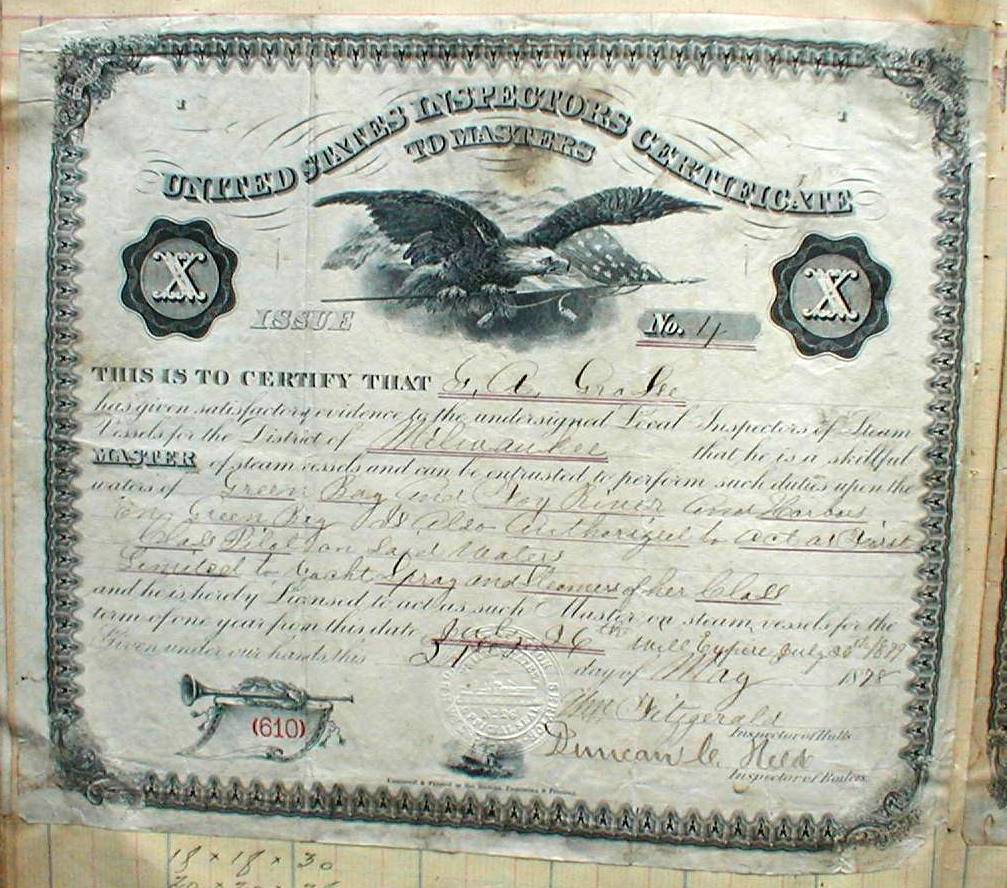 UNITED STATES INSPECTORS CERTIFICATE
TO MASTERS
X
X
ISSUE
No. 4
THIS IS TO CERTIFY THAT G. A.
has given satisfactory evidence to the undersigned Local Inspectors of Steam
Vessels for the District of Milwaukee that he is a skillful
MASTER of steam vessels and can be intrusted to perform such duties upon the
waters of Green Bay and Fox River and Harbors
on Green Bay Is Also Authorized to act as First
Class Pilot on Said Waters
Limited to Yacht Spray and Steamers of her Class
and he is hereby Licensed to act as such Master on steam vessels for the
term of one year from this date July 26th will Expire July 26th 1879
Given under our hands this day of May 1878
Wm Fitzgerald
Inspector of Hulls.
Duncan C. Reed
Inspector of Boilers.
(610)
18 x 18 x 30